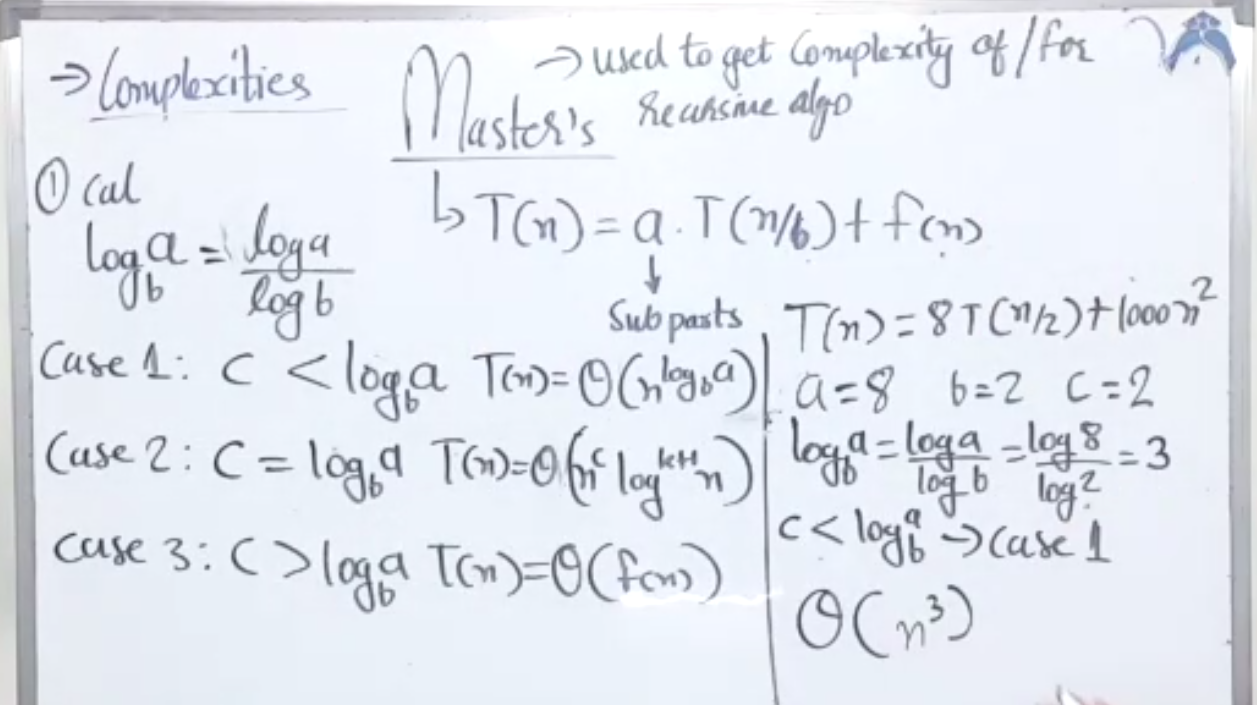 → Complexities
Master's
→ used to get Complexity of / for
Recursive algo
① Cal
log_b a = log a / log b
↳ T(n) = a . T(n/b) + f(n)
↓
Sub parts
Case 1: C < log_b a T(n) = Θ(n^{log_b a})
Case 2: C = log_b a T(n) = Θ(n^c log^{k+1} n)
Case 3: C > log_b a T(n) = Θ(f(n))
T(n) = 8T(n/2) + 1000n²
a = 8 b = 2 C = 2
log_b a = log a / log b = log 8 / log 2 = 3
C < log_b a → Case 1
Θ(n³)